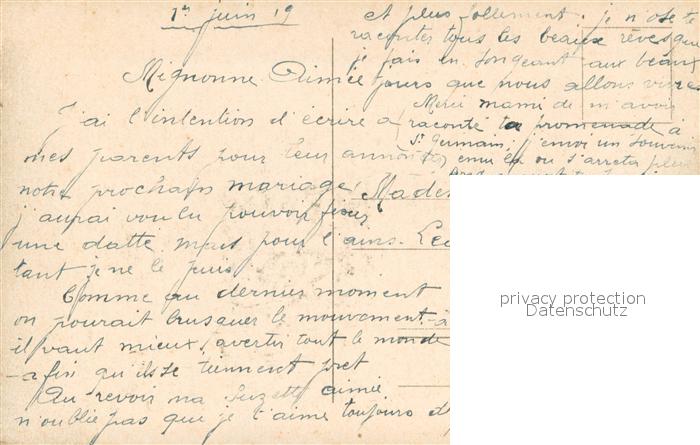 1er juin 19
Mignonne Aimée
J'ai l'intention d'écrire à
mes parents pour leur annoncer
notre prochain mariage,
j'aurai voulu pouvoir fixer
une datte mais pour l'ains-
tant je ne le puis
Comme au dernier moment
on pourait brusquer le mouvement
il vaut mieux avertir tout le monde
afin qu'ils se tiennent pret
Au revoir ma Suzette aimée
n'oublie pas que je t'aime toujours
et plus follement. je n'ose te
raconter tous les beaux rêves que
je fais en songeant aux beaux
jours que nous allons vivre
Merci mami de m'avoir
raconté ta promenade à
St Germain, j'envoi un souvenir
ému ou s'arreta
privacy protection
Datenschutz